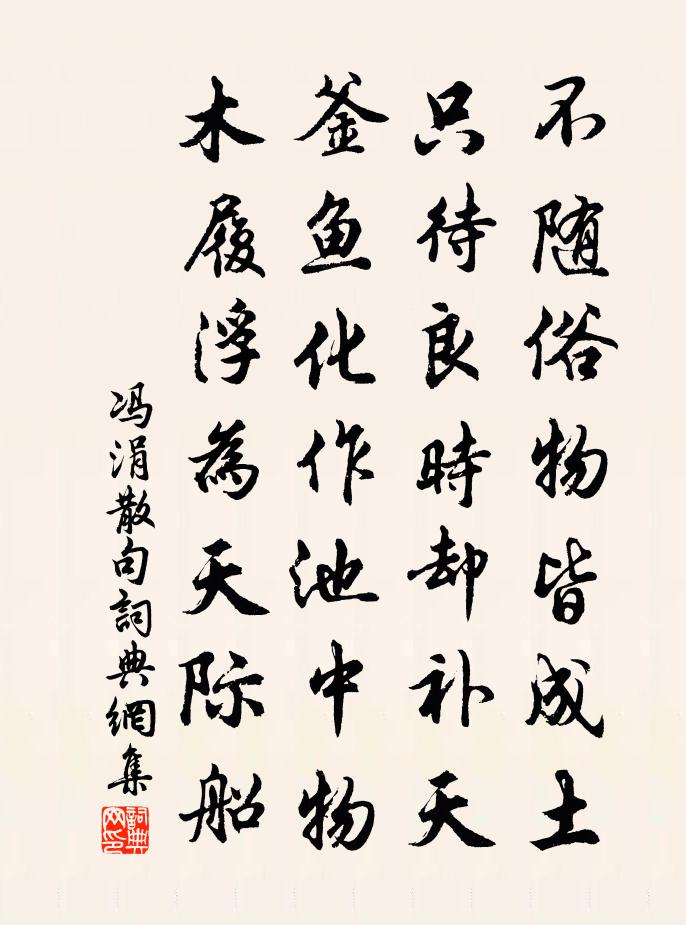 不随俗物皆成土
只待良時却补天
釜鱼化作池中物
木履浮為天际船
冯涓散句詞典網集
詞典
网印